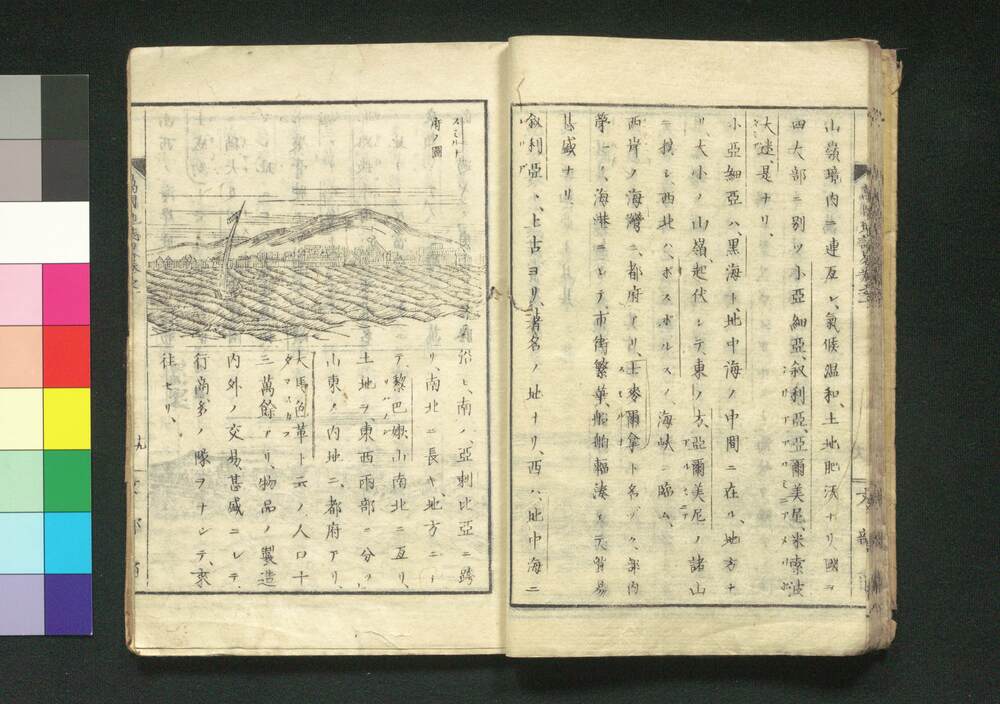 山嶺環内ニ連亙シ、氣候温和、土地肥沃ナリ、國ヲ
四大部ニ別ツ、小亞細亞、叙利亞、亞爾美尼、米索波
大迷、是ナリ、
小亞細亞ハ、黒海ト、地中海ノ中間ニ在ル、地方ナ
リ、大小ノ山嶺、起伏シテ、東ノ方、亞爾美尼ノ諸山
ニ接シ、西北ハ、ボスボルスノ、海峡ニ臨ム、
西岸ノ海灣ニ、都府アリ、士麥爾拿ト名ヅク、部内
第一ノ、海港ニシテ、市街繁華、船舶輻湊シテ、貿易
甚盛ナリ、
叙利亞ハ、上古ヨリ、著名ノ地ナリ、西ハ、地中海ニ
スミルナ
府ノ圖
沿ヒ、南ノ、亞剌比亞ニ跨
リ、南北ニ長キ、地方ニシ
テ、黎巴嫩山南北ニ亙リ、
土地ヲ東西兩部ニ分ツ、
山東ノ内地ニ、都府アリ、
大馬色革ト云フ、人口十
三萬餘アリ、物品ノ製造
内外ノ交易、甚盛ニシテ、
行商、多ノ隊ヲナシテ、來
往セリ、
九
文部省